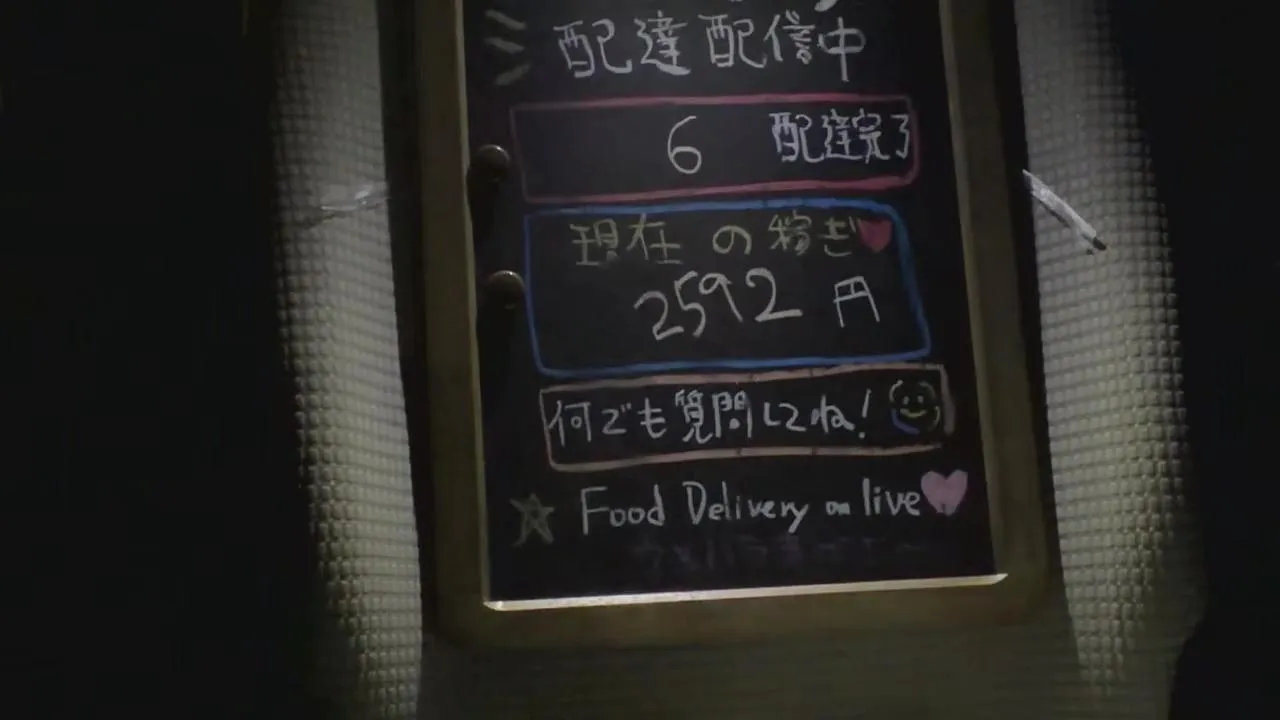 配達配信中
6 配達完了
現在の稼ぎ
2592 円
何でも質問してね!
Food Delivery on live